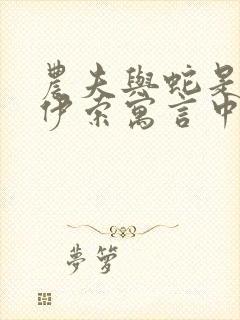 農夫與蛇是
伊索寓言中
夢箩